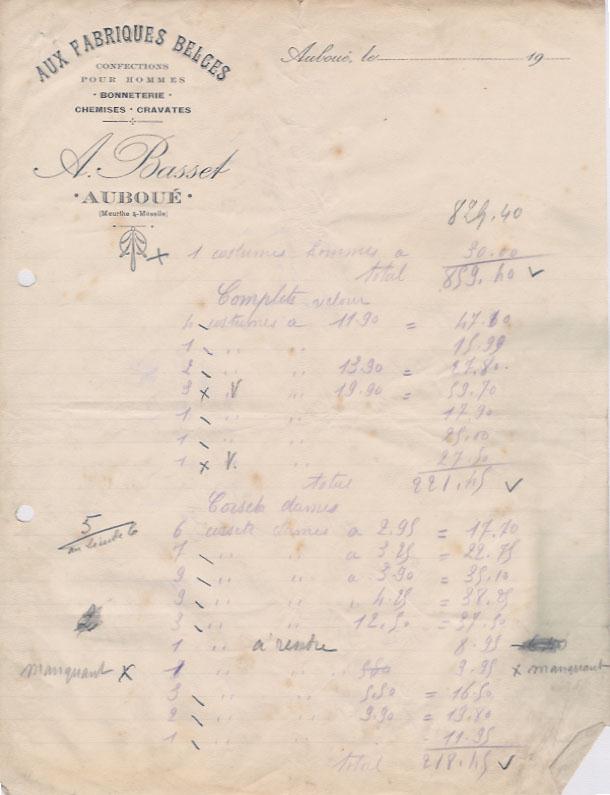 AUX FABRIQUES BELGES
CONFECTIONS
POUR HOMMES
· BONNETERIE ·
CHEMISES · CRAVATES
A. Basset
· AUBOUÉ ·
(Meurthe & Moselle)
Auboué, le 19
829.40
x 1 costumes hommes a 30.00
total 859.40 ✓
Complets velour
4 costumes a 11.90 = 47.60
1 " " 15.99
2 " " 13.90 = 27.80
3 x " V " 19.90 = 59.70
1 " " 17.90
1 " " 25.00
1 x V. " 27.50
total 221.45 ✓
Corsets dames
5
6 corsets dames a 2.95 = 17.70
7 " " a 3.25 = 22.75
9 " " a 3.90 = 35.10
9 " " 4.25 = 38.25
3 " " 12.50 = 37.50
1 " à rendre 8.95
manquant x 1 " " 9.95 x manquant
3 " " 5.50 = 16.50
2 " " 9.90 = 19.80
1 " " 11.95
total 218.45 ✓